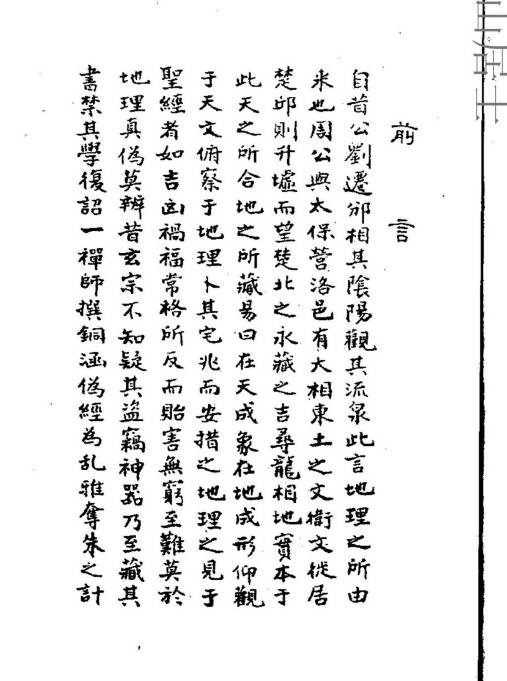 前言
自昔公劉遷邠相其陰陽觀其流泉此言地理之所由
来也周公與太保營洛邑有大相東土之文衛文徙居
楚邱則升墟而望楚北之永藏之吉尋龍相地實本于
此天之所合地之所藏易曰在天成象在地成形仰觀
于天文俯察于地理卜其宅兆而安措之地理之見于
聖經者如吉凶禍福常格所反而貽害無窮至難莫於
地理真偽莫辨昔玄宗不知疑其盜竊神器乃至藏其
書禁其學復詔一禪師撰銅涵偽經為乱雅奪朱之計